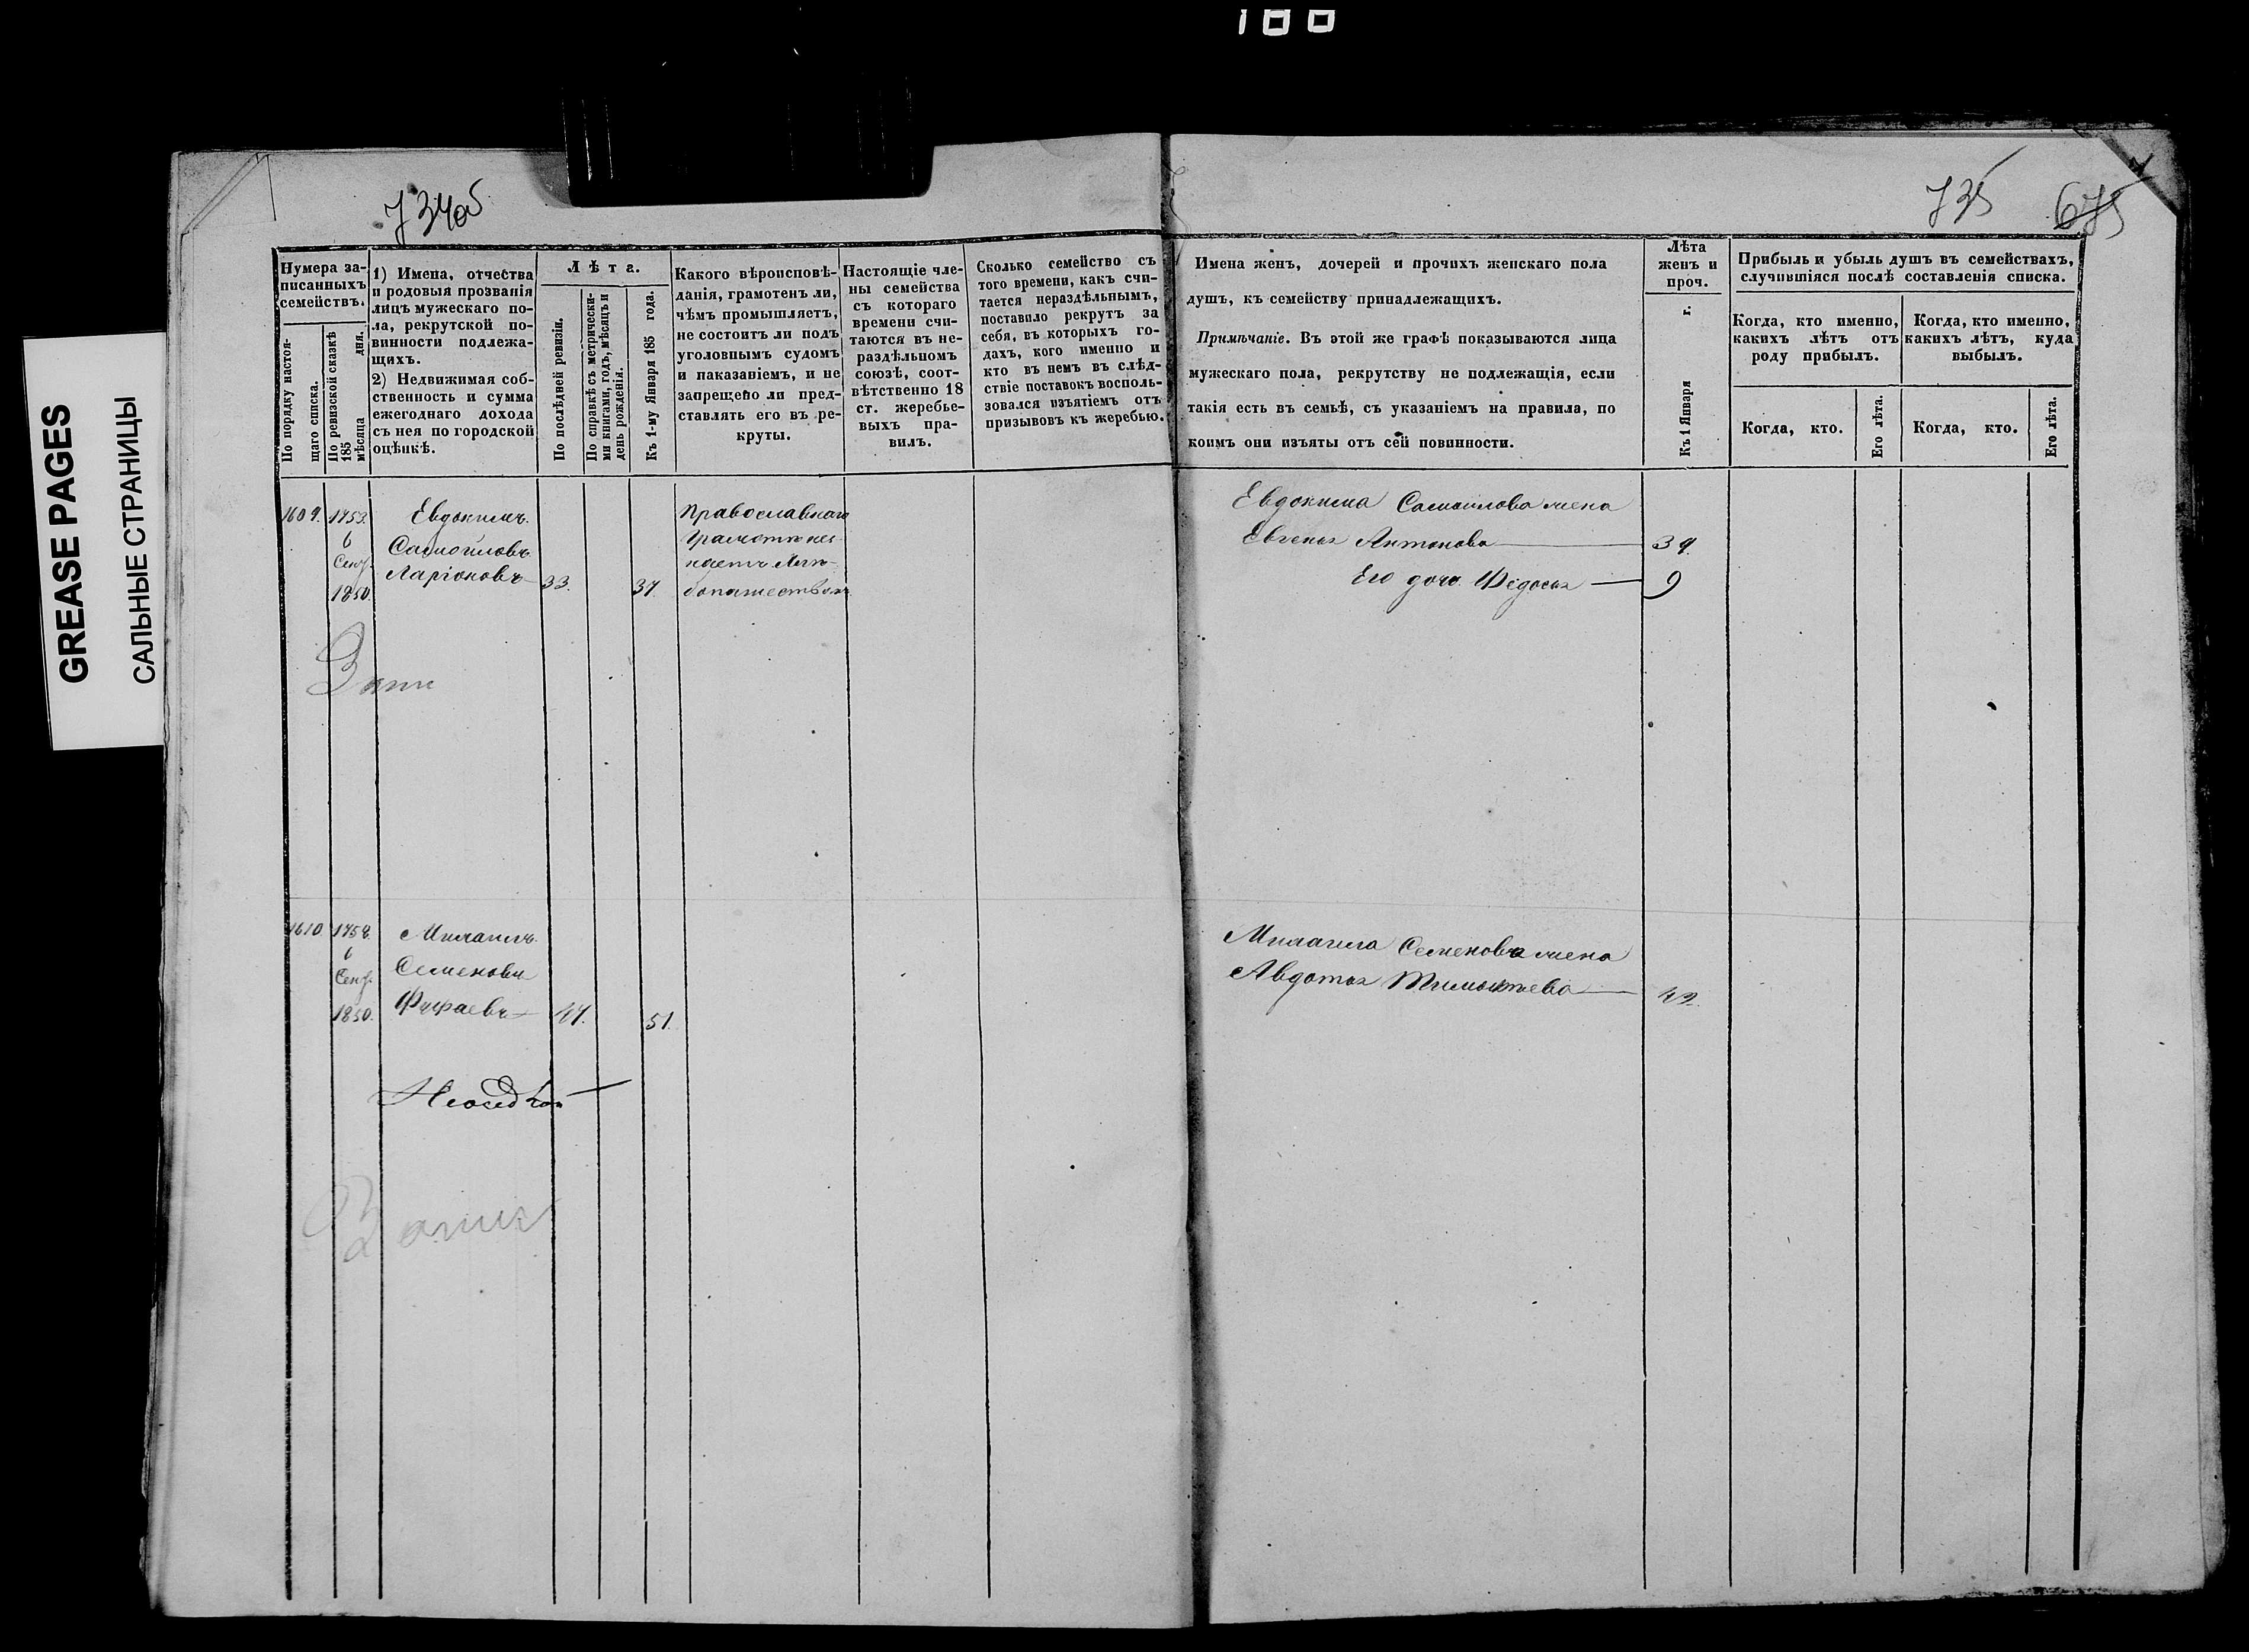 188
GREASE PAGES
САЛЬНЫЕ СТРАНИЦЫ
734об
735
675
Нумера за-
писанныхъ
семействъ.
По порядку настоя-
щаго списка.
По ревизской сказкѣ
185
мѣсяца дня.
1) Имена, отчества
и родовыя прозванія
лицъ мужескаго по-
ла, рекрутской по-
винности подлежа-
щихъ.
2) Недвижимая соб-
ственность и сумма
ежегоднаго дохода
съ нея по городской
оцѣнкѣ.
Лѣта.
По послѣдней ревизіи.
По справкѣ съ метрически-
ми книгами, годъ, мѣсяцъ и
день рожденія.
Къ 1-му Января 185 года.
Какого вѣроисповѣ-
данія, грамотенъ ли,
чѣмъ промышляетъ,
не состоитъ ли подъ
уголовнымъ судомъ
и наказаніемъ, и не
запрещено ли пред-
ставлять его въ ре-
круты.
Настоящіе чле-
ны семейства
съ котораго
времени счи-
таются въ не-
раздѣльномъ
союзѣ, соот-
вѣтственно 18
ст. жеребье-
выхъ пра-
вилъ.
Сколько семейство съ
того времени, какъ счи-
тается нераздѣльнымъ,
поставило рекрутъ за
себя, въ которыхъ го-
дахъ, кого именно и
кто въ немъ въ слѣд-
ствіе поставокъ восполь-
зовался изъятіемъ отъ
призывовъ къ жеребью.
Имена женъ, дочерей и прочихъ женскаго пола
душъ, къ семейству принадлежащихъ.
Примѣчаніе. Въ этой же графѣ показываются лица
мужескаго пола, рекрутству не подлежащія, если
такія есть въ семьѣ, съ указаніемъ на правила, по
коимъ они изъяты отъ сей повинности.
Лѣта
женъ и
проч.
Къ 1 Января г.
Прибыль и убыль душъ въ семействахъ,
случившіяся послѣ составленія списка.
Когда, кто именно,
какихъ лѣтъ отъ
роду прибылъ.
Когда, кто именно,
какихъ лѣтъ, куда
выбылъ.
Когда, кто.
Его лѣта.
Когда, кто.
Его лѣта.
1609.
6
Сент.
1850.
Евдокимъ
Самойловъ
Ларіоновъ
33.
37.
Православнаго
Грамотѣ не
знаетъ хлѣ-
бопашествомъ
Евдокима Самойлова жена
Евгенья Антонова
39.
Его дочь Федосья
9
1610
6
Сент.
1850.
Семеновъ
47.
51.
Семенова жена
Авдотья Тимофѣева
42.